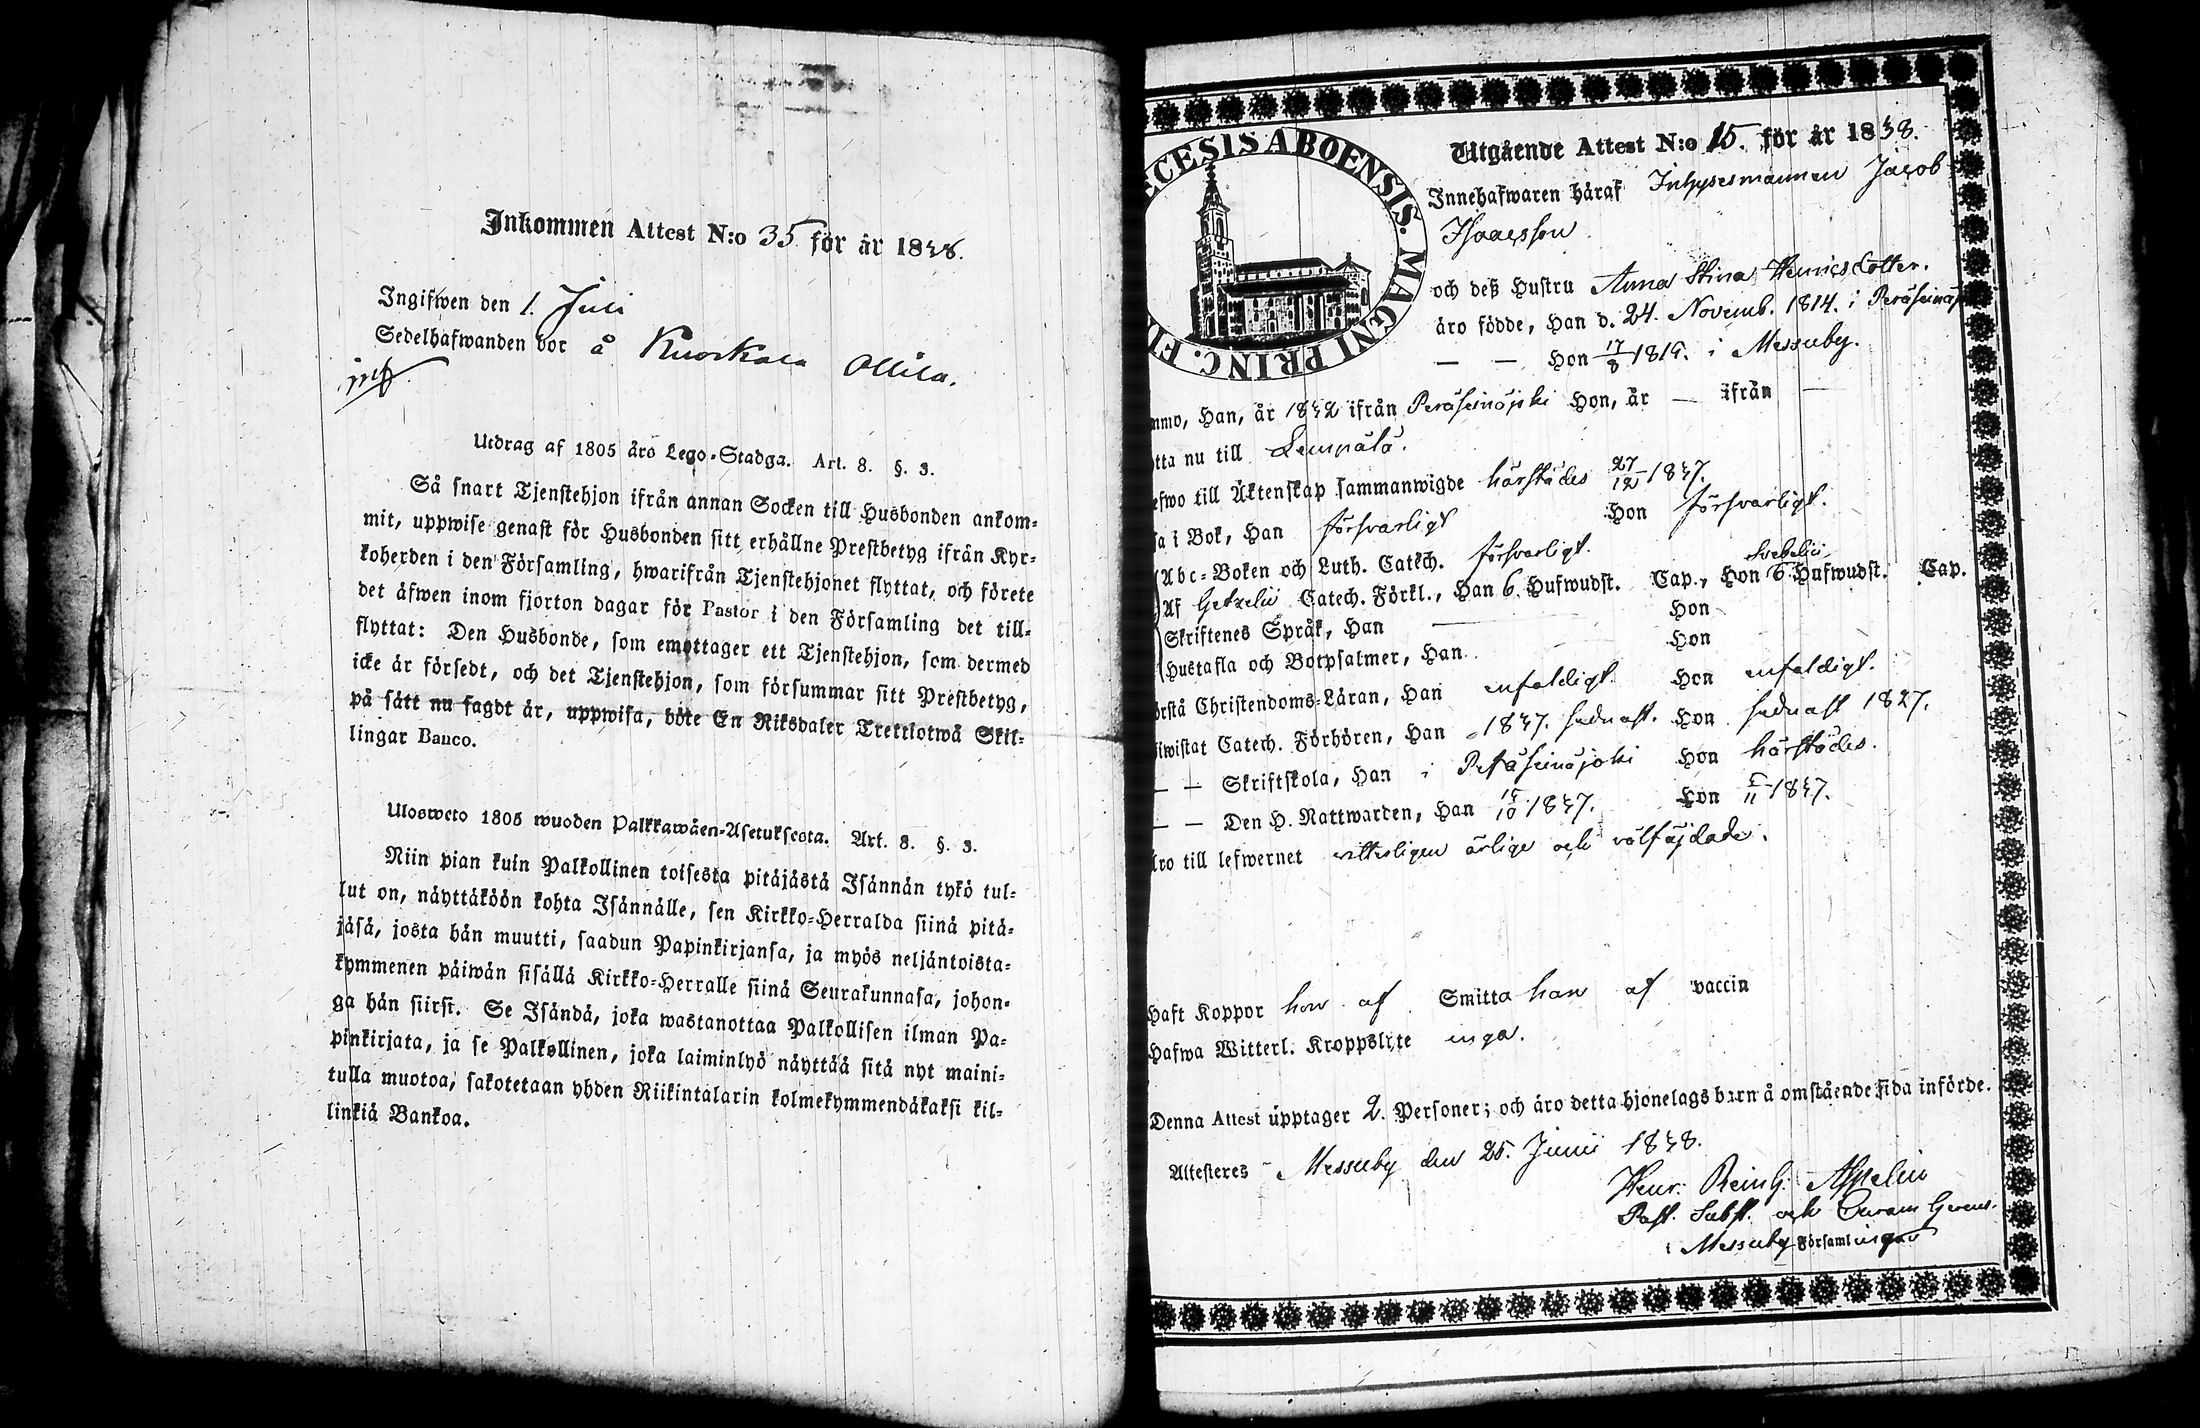 Inkommen Attest N:o 35 för år 1848.
Ingifwen den 1. Juli
Sedelhafwanden bor å Kuokkala Ollila.
Utdrag af 1805 års Lego-Stadga. Art. 8. §. 3.
Så snart Tjenstehjon ifrån annan Socken till Husbonden ankom-
mit, uppwise genast för Husbonden sitt erhållne Prestbetyg ifrån Kyr-
koherden i den Församling, hwarifrån Tjenstehjonet flyttat, och förete
det äfwen inom fjorton dagar för Pastor i den Församling det till-
flyttat: Den Husbonde, som emottager ett Tjenstehjon, som dermed
icke är försedt, och det Tjenstehjon, som försummar sitt Prestbetyg,
på sätt nu sagdt är, uppwisa, böte En Riksdaler Trettiotwå Skil-
lingar Banco.
Ulosweto 1805 wuoden Palkkawäen-Asetuksesta. Art. 8. §. 3.
Niin pian kuin Palkollinen toisesta pitäjästä Isännän tykö tul-
lut on, näyttäköön kohta Isännälle, sen Kirkko-Herralda siinä pitä-
jäsä, josta hän muutti, saadun Papinkirjansa, ja myös neljäntoista-
kymmenen päiwän sisällä Kirkko-Herralle siinä Seurakunnasa, johon-
ga hän siirsi. Se Isändä, joka wastanottaa Palkollisen ilman Pa-
pinkirjata, ja se Palkollinen, joka laiminlyö näyttää sitä nyt maini-
tulla muotoa, sakotetaan yhden Riikintalarin kolmekymmendäkaksi kil-
linkiä Bankoa.
ECESIS ABOENSIS. MAGNI PRINC. FI
Utgående Attest N:o 15. för år 1848.
Innehafwaren häraf Inhysesmannen Jacob
Isaacsson
och deß Hustru Anna Stina Henricsdotter.
äro födde, Han d. 24. Novemb. 1814. i Peräseinäj
— — Hon 17/8 1819. i Messuby.
mmo, Han, år 1842 ifrån Peräseinäjoki Hon, år — ifrån —
tta nu till Lempälä.
efwo till Äktenskap sammanwigde härstädes 27/12 1847.
sa i Bok, Han försvarligt Hon försvarligt.
Abc-Boken och Luth. Catech. försvarligt.
Svebelii
Af Getzelii Catech. Förkl., Han 6. Hufwudst. Cap., Hon 6. Hufwudst. Cap.
Skriftenes Språk, Han — Hon
Hustafla och Botpsalmer, Han Hon
örstå Christendoms-Läran, Han enfaldigt. Hon enfaldigt.
iwistat Catech. Förhören, Han 1847. sednast. Hon sednast 1847.
— — Skriftskola, Han i Peräseinäjoki Hon härstädes.
— — Den H. Nattwarden, Han 1847. Hon 1847.
äro till lefwernet vitterligen ärlige och välfrejdade.
Haft Koppor hon af Smitta han af vaccin
Hafwa Witterl. Kroppslyte inga.
Denna Attest upptager 2. Personer; och äro detta hjonelags barn å omstående sida införde.
Attesteres Messuby den 25. Junii 1848.
Henr. Reinh.
Past. Subst. och Curam Gerens.
i Messuby Församlingar